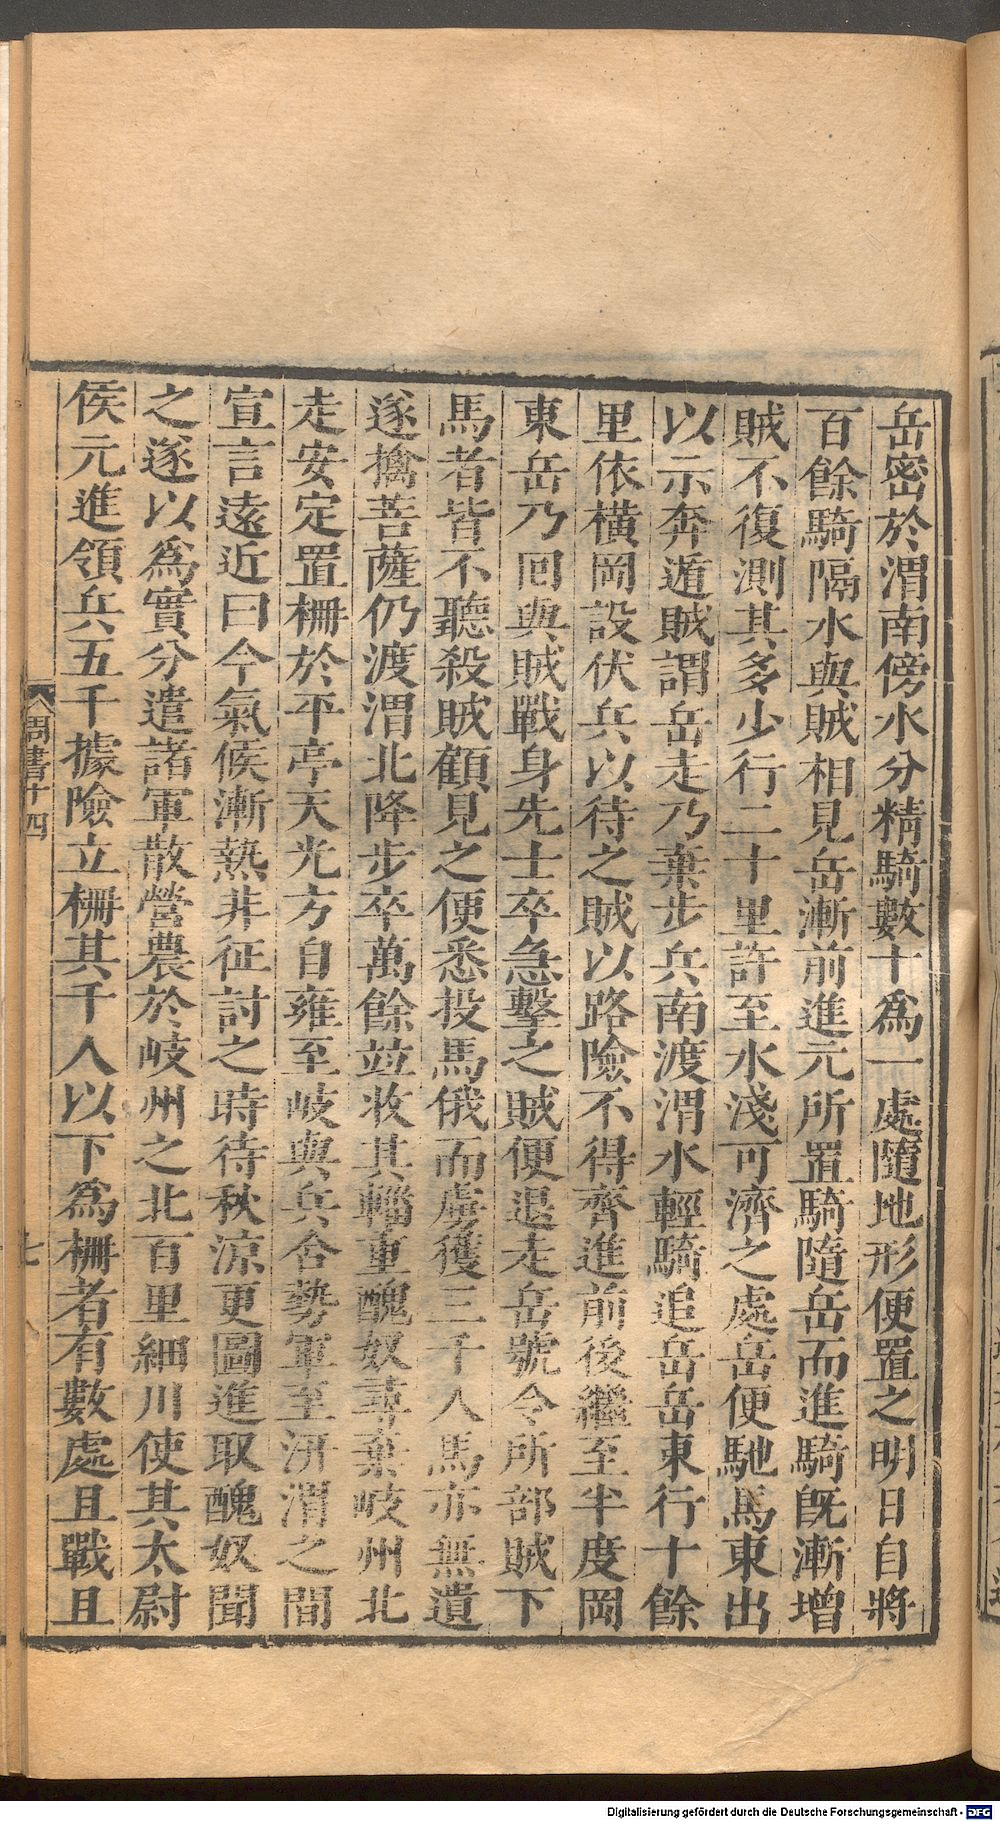 岳密於渭南傍水分精騎數十爲一處隨地形便置之明日自將
百餘騎隔水與賊相見岳漸前進元所置騎隨岳而進騎旣漸增
賊不復測其多少行二十里許至水淺可濟之處岳便馳馬東出
以示奔遁賊謂岳走乃棄步兵南渡渭水輕騎追岳岳東行十餘
里依橫岡設伏兵以待之賊以路險不得齊進前後繼至半度岡
東岳乃回與賊戰身先士卒急擊之賊便退走岳號令所部賊下
馬者皆不聽殺賊顧見之便悉投馬俄而虜獲三千人馬亦無遺
遂擒菩薩仍渡渭北降步卒萬餘竝收其輜重醜奴尋棄岐州北
走安定置柵於平亭天光方自雍至岐與兵合勢軍至汧渭之間
宣言遠近曰今氣候漸熱非征討之時待秋涼更圖進取醜奴聞
之遂以爲實分遣諸軍散營農於岐州之北百里細川使其太尉
侯元進領兵五千據險立柵其千人以下爲柵者有數處且戰且
周書十四
七
Digitalisierung gefördert durch die Deutsche Forschungsgemeinschaft - DFG